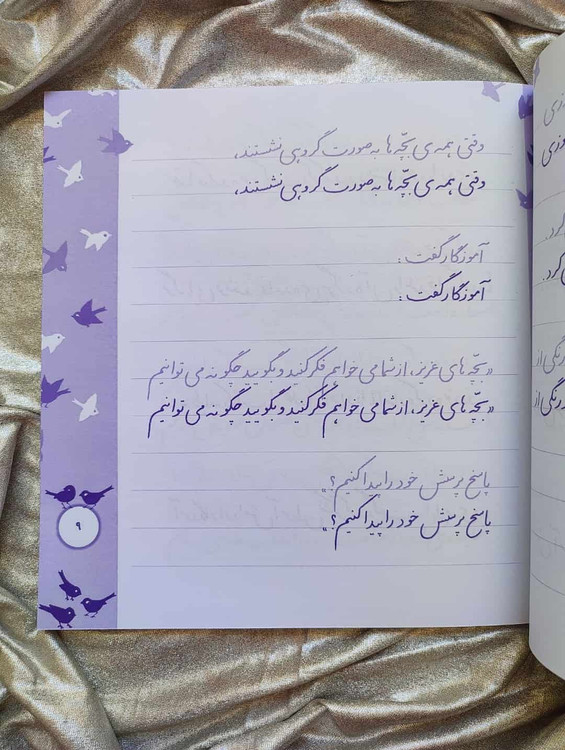 وقتی همه‌ی بچّه‌ها به صورت گروهی نشستند،
وقتی همه‌ی بچّه‌ها به صورت گروهی نشستند،
آموزگار گفت:
آموزگار گفت:
«بچّه‌های عزیز، از شما می‌خواهم فکر کنید و بگویید چگونه می‌توانیم
«بچّه‌های عزیز، از شما می‌خواهم فکر کنید و بگویید چگونه می‌توانیم
پاسخ پرسش خود را پیدا کنیم؟»
پاسخ پرسش خود را پیدا کنیم؟»
۹